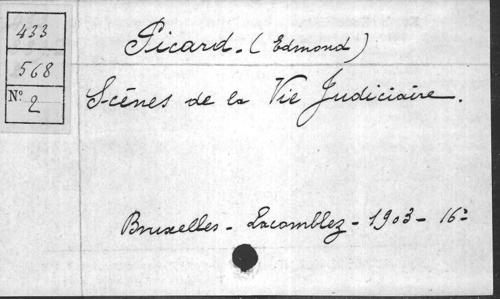 433
568
N.º 2
Picard. (Edmond)
Scènes de la Vie Judiciaire.
Bruxelles - Lacomblez - 1903 - 16º